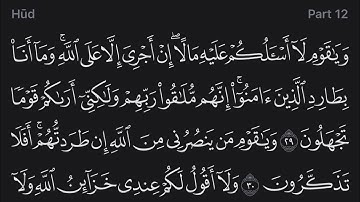 Hūd Part 12
وَيَٰقَوْمِ لَآ أَسْـَٔلُكُمْ عَلَيْهِ مَالًا ۖ إِنْ أَجْرِىَ إِلَّا عَلَى ٱللَّهِ ۚ وَمَآ أَنَا۠
بِطَارِدِ ٱلَّذِينَ ءَامَنُوٓا۟ ۚ إِنَّهُم مُّلَٰقُوا۟ رَبِّهِمْ وَلَٰكِنِّىٓ أَرَىٰكُمْ قَوْمًا
تَجْهَلُونَ ٢٩ وَيَٰقَوْمِ مَن يَنصُرُنِى مِنَ ٱللَّهِ إِن طَرَدتُّهُمْ ۚ أَفَلَا
تَذَكَّرُونَ ٣٠ وَلَآ أَقُولُ لَكُمْ عِندِى خَزَآئِنُ ٱللَّهِ وَلَآ